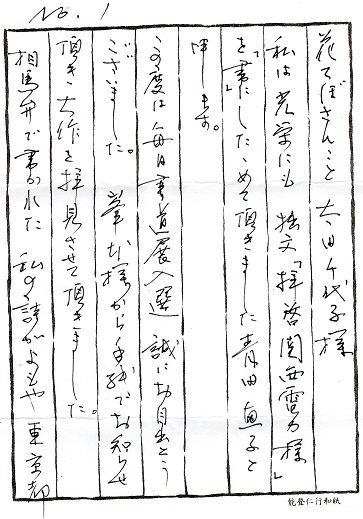 No. 1
花てぼさんこと 太田千代子様
私は光栄にも 拙文「拝啓関西電力様」
を「書」にしたゝめて頂きました青田恵子と
申します。
この度は毎日書道展入選 誠にお目出とう
ございました。 峯お様から手紙でお知らせ
頂き 大作を拝見させて頂きました。
相馬弁で書かれた 私の詩がよもや東京都
能登仁行和紙